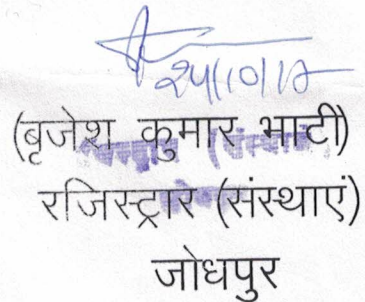 (बृजेश कुमार भाटी)
रजिस्ट्रार (संस्थाएं)
जोधपुर